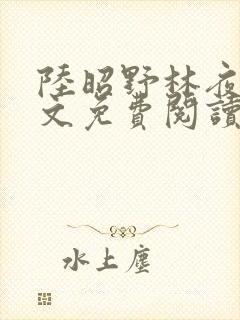 陸昭野林夜
文免費閱讀
水上塵